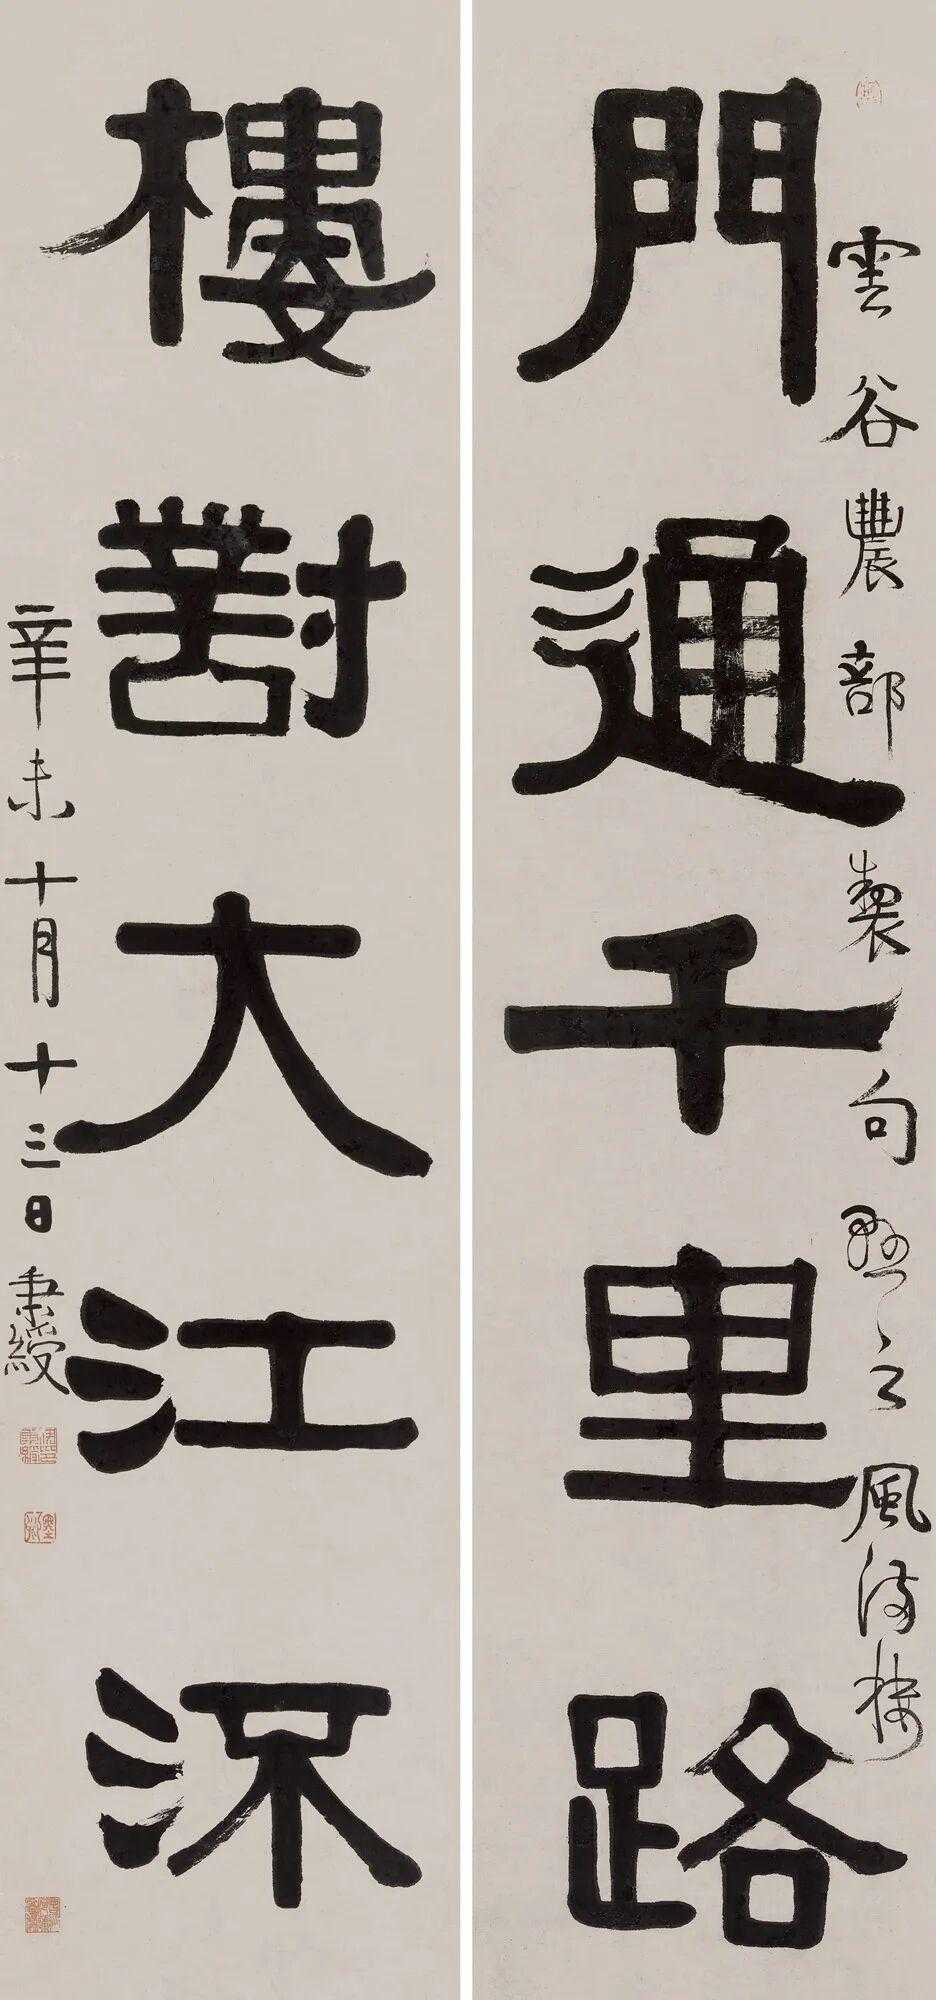 雲谷農部製句懸之風滿樓
門通千里路
樓對大江深
辛未十月十三日秉綬